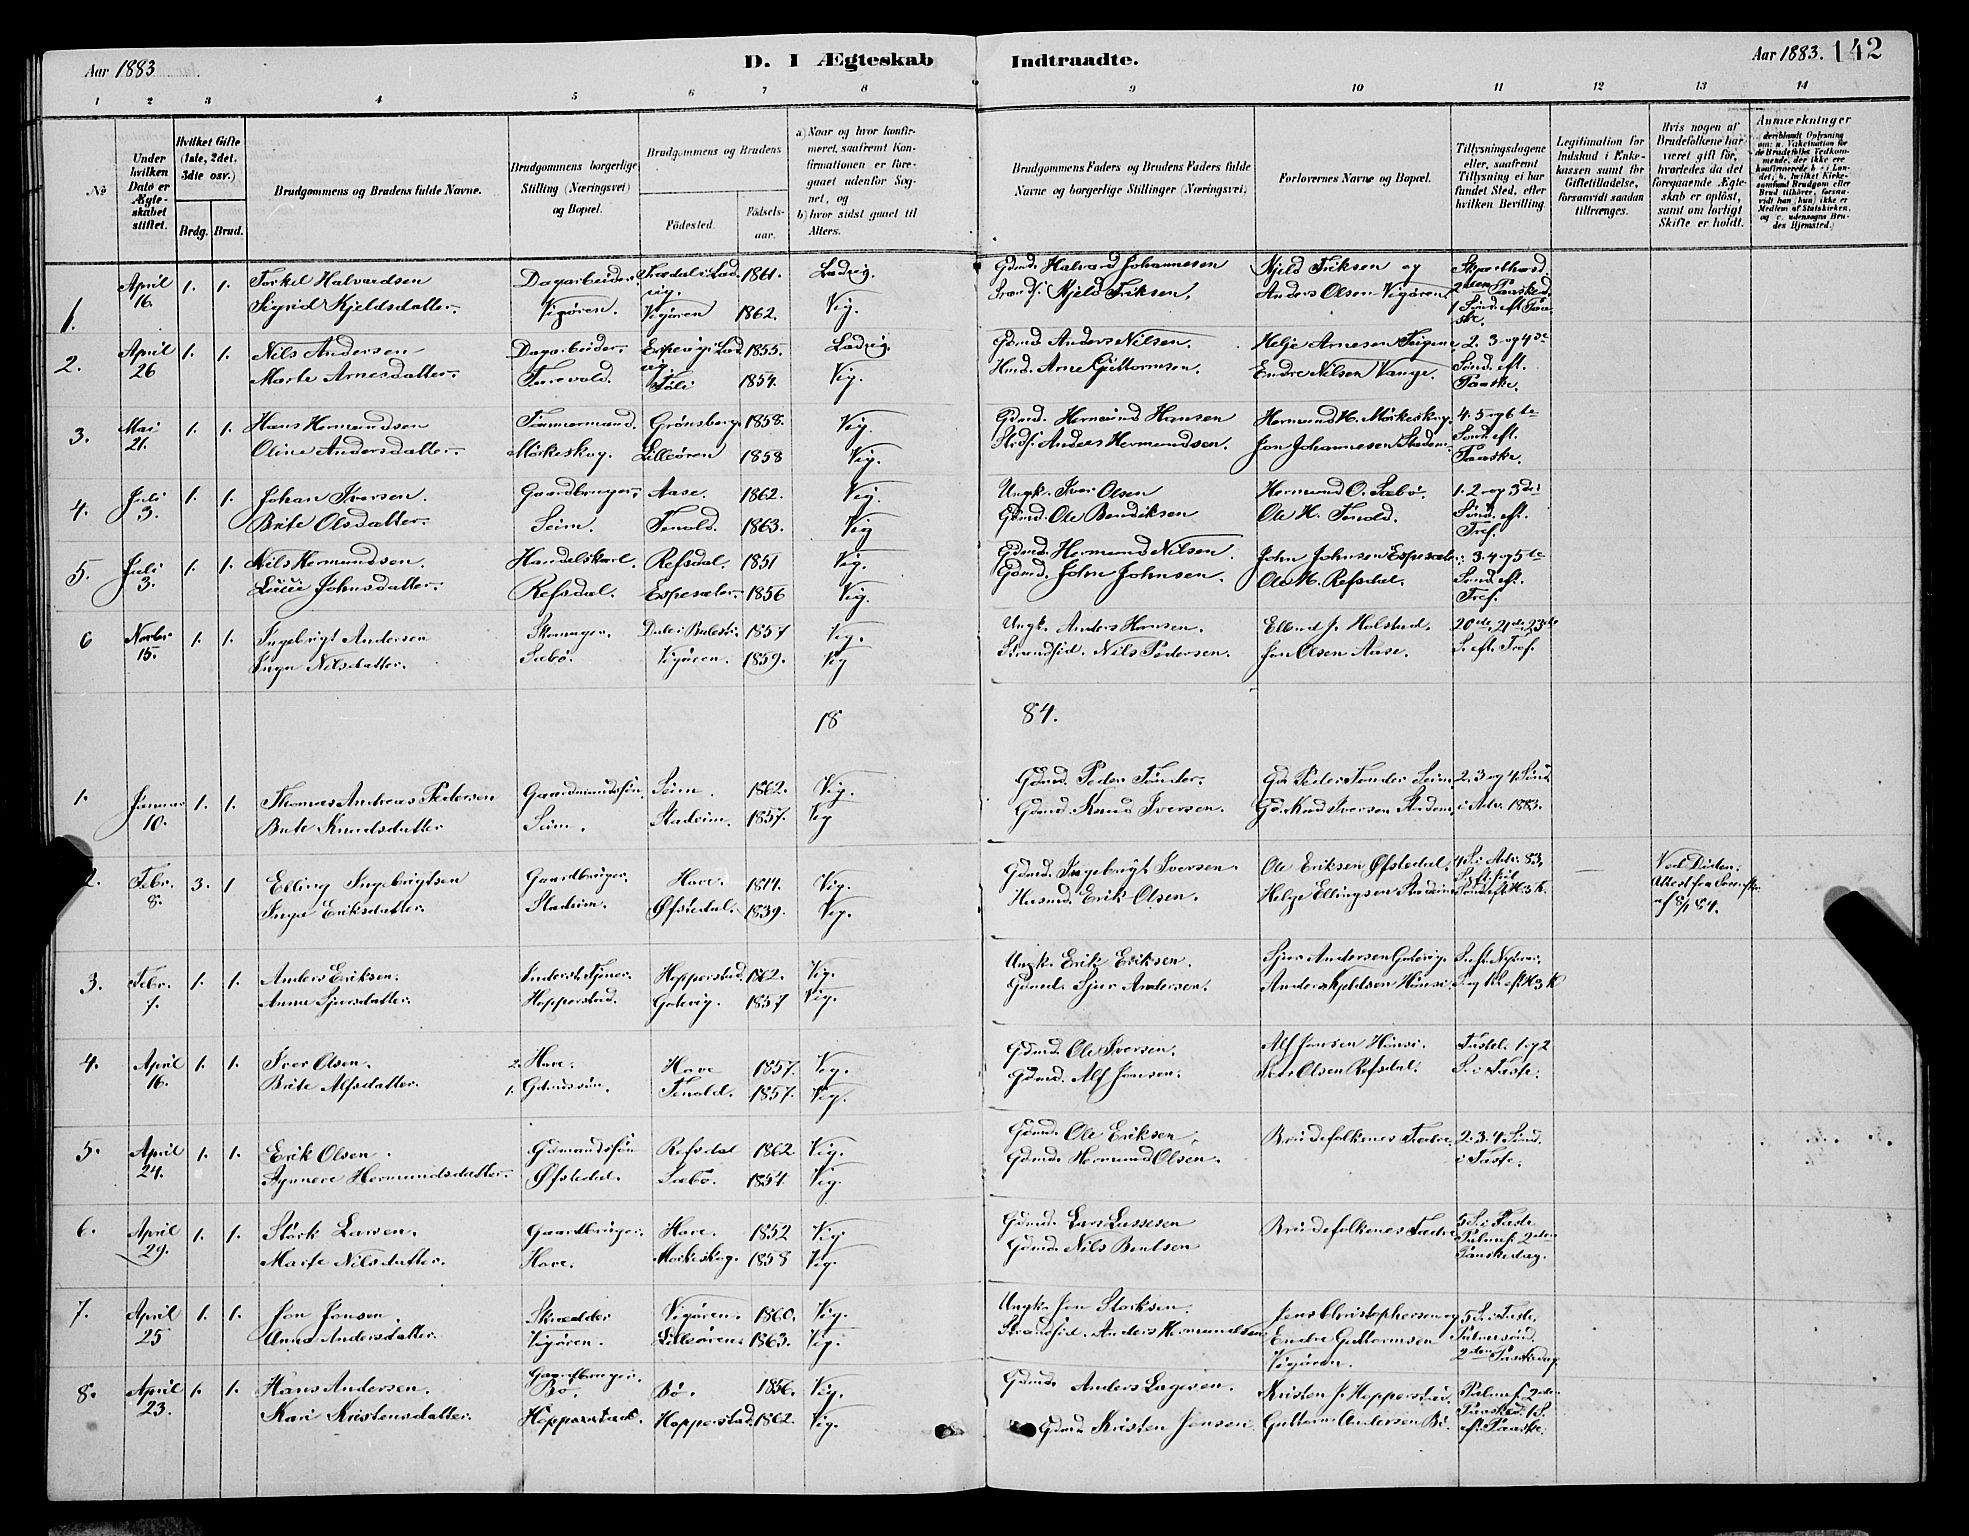 Aar 1883
D. I Ægteskab Indtraadte.
Aar 1883. 142
1 2 3 4 5 6 7 8 9 10 11 12 13 14
No
Under hvilken Dato er Ægteskabet stiftet.
Hvilket Gifte (1ste, 2det, 3die osv.)
Brdg. Brud.
Brudgommens og Brudens fulde Navne.
Brudgommens borgerlige Stilling (Næringsvei) og Bopæl.
Brudgommens og Brudens
Fødested. Fødselsaar.
a) Naar og hvor konfirmeret, saafremt Konfirmationen er foregaaet udenfor Sognet, og
b) hvor sidst gaaet til Alters.
Brudgommens Faders og Brudens Faders fulde Navne og borgerlige Stillinger (Næringsvei).
Forlovernes Navne og Bopæl.
Tillysningsdagene eller, saafremt Tillysning ei har fundet Sted, efter hvilken Bevilling.
Legitimation for Indskud i Enkekassen samt for Giftetilladelse, forsaavidt saadan tiltrænges.
Hvis nogen af Brudefolkene har været gift før, hvorledes da det foregaaende Ægteskab er opløst, samt om lovligt Skifte er holdt.
Anmærkninger
1. April 16. 1. 1. Torkel Halvardsen Dagarbeider 1861. Ladvig. Gdmd. Halvard Johannesen Kjeld Eriksen og
Sigrid Kjeldsdatter. Vigøren. Vigøren 1862. Vig. Kjeld Eriksen. Anders Olsen Vigøren
2. April 26 1. 1. Nils Andersen Dagarbeider. 1855. Ladvig. Gdmd Anders Nilsen. Helje Arnesen 2. 3 og 4de
Marte Arnesdatter. 1854. Vig. Hmd. Arne Guttormsen. Endre Nilsen Vange. Sønd. eft. Paaske.
3. Mai 21. 1. 1. Hans Hermundsen Tømmermand. Grønsberg 1858. Vig. Gdmd. Hermund Hansen Hermund H. Mørkeskog. 4. 5 og 6te
Oline Andersdatter. Mørkeskog. Lilleøren 1858 Vig. Anders Hermundsen. Jon Johannesen Stadem. Sønd. eft. Paaske.
4. Juli 3. 1. 1. Johan Iversen. Gaardbruger. Aase. 1862. Vig. Ungk. Iver Olsen Hermund O. Sæbø. 1. 2 og 3die
Brite Olsdatter. Seim. Tenold. 1863. Vig Gdmd. Ole Bendiksen Ole H. Tenold. Sønd. eft. Tref.
5. Juli 3. 1. 1. Nils Hermundsen. Handelskarl. Refsdal. 1851 Vig. Gdmd. Hermund Nilsen. John Johnsen Espesæter. 3. 4 og 5te
Johnsdatter. Refsdal. Espesæter. 1856 Vig. Gdmd. John Johnsen. Ole H. Refsdal. Sønd. eft. Tref.
6 Novbr 15. 1. 1. Ingebrigt Andersen Skomager. Dale i 1857 Vig. Ungk. Anders Hansen. J. Holstad. 20de, 21de, 23de
Inga Nilsdatter. Sæbø. Vigøren. 1859. Vig Strandsid. Nils Pedersen. Jon Olsen Aase. S. eft. Tref.
18 84.
1. Januar 10. 1. 1. Thomas Andreas Pedersen Gaardmandssøn Seim. 1862. Vig. Gdmd. Peder Tønder. Gdr Peder Tønder Seim. 2. 3 og 4. Sønd.
Brite Knudsdatter Seim. Stadeim. 1857. Vig Gdmd Knud Iversen. Gdr. Knud Iversen Stadem. i Adv. 1883.
2. Febr. 8. 3. 1 Elling Ingebrigtsen Gaardbruger. Hove. 1814. Vig. Gdmd. Ingebrigt Iversen. Ole Eriksen Øfstedal. 4 S. i Adv. 83, — Ved Døden.
Inga Eriksdatter. Stadeim. Øfstedal. 1839. Vig. Husmd. Erik Olsen. Helge Ellingsen Stadeim Attest fra
af 8/1 84.
3. Febr. 7. 1. 1. Anders Eriksen. Hopperstad. 1862. Vig. Ungk. Erik Eriksen. Sjur Andersen Golevig. S. eft. Nytaar.
Anna Sjursdatter. Hopperstad. Golevig. 1857 Vig. Gdmd. Sjur Andersen. Anders Kjeldsen
4. April 16. 1. 1. Iver Olsen. 2. Hove. Hove 1857. Vig. Gdmd. Ole Iversen. Alf Jonsen Fastel. 1. og 2
Brite Alfsdatter. 1. Gdmssøn. Tenold. 1857. Vig. Gdmd. Alf Jonsen. Olsen Refsdal. S. i Faste.
5. April 24. 1. 1. Erik Olsen. Gdmandssøn Refsdal 1862. Vig. Gdmd. Ole Eriksen. Brudefolkenes Fædre. 2. 3. 4 Sønd.
Hermundsdatter. Øfstedal. Sæbø. 1854. Vig. Gdmd. Hermund Olsen. i Faste.
6. April 29. 1. 1. Størk Larsen. Gaardbruger. Hove. 1852 Vig. Gdmd. Lars Lassesen Brudefolkenes Fædre 5 S. i Faste
Marte Nilsdatter. Hove. Mørkeskog. 1858 Vig. Gdmd. Nils Bentsen Palmes. 2den Paaskedag.
7. April 25 1. 1. Jon Jonsen. Skrædder Vigøren. 1860. Vig. Ungk. Jon Størksen. Jens Christophersen og 5 S. i Faste.
Anna Andersdatter. Vigøren. Lilleøren. 1863. Vig. Strandsid. Anders Hermundsen Endre Guttormsen Vigøren. Palmesønd. 2den Paaskedag.
8. April 23. 1. 1. Hans Andersen. Gaardbruger. Bø. Bø. 1856. Vig. Gdmd. Anders Kristen J. Hopperstad. Palmes. 2den
Kari Kristensdatter. Hopperstad. Hopperstad. 1862. Vig. Gdmd Kristen Jensen. Guttorm Andersen Bø. Paasked. 1 S. eft. Paaske.